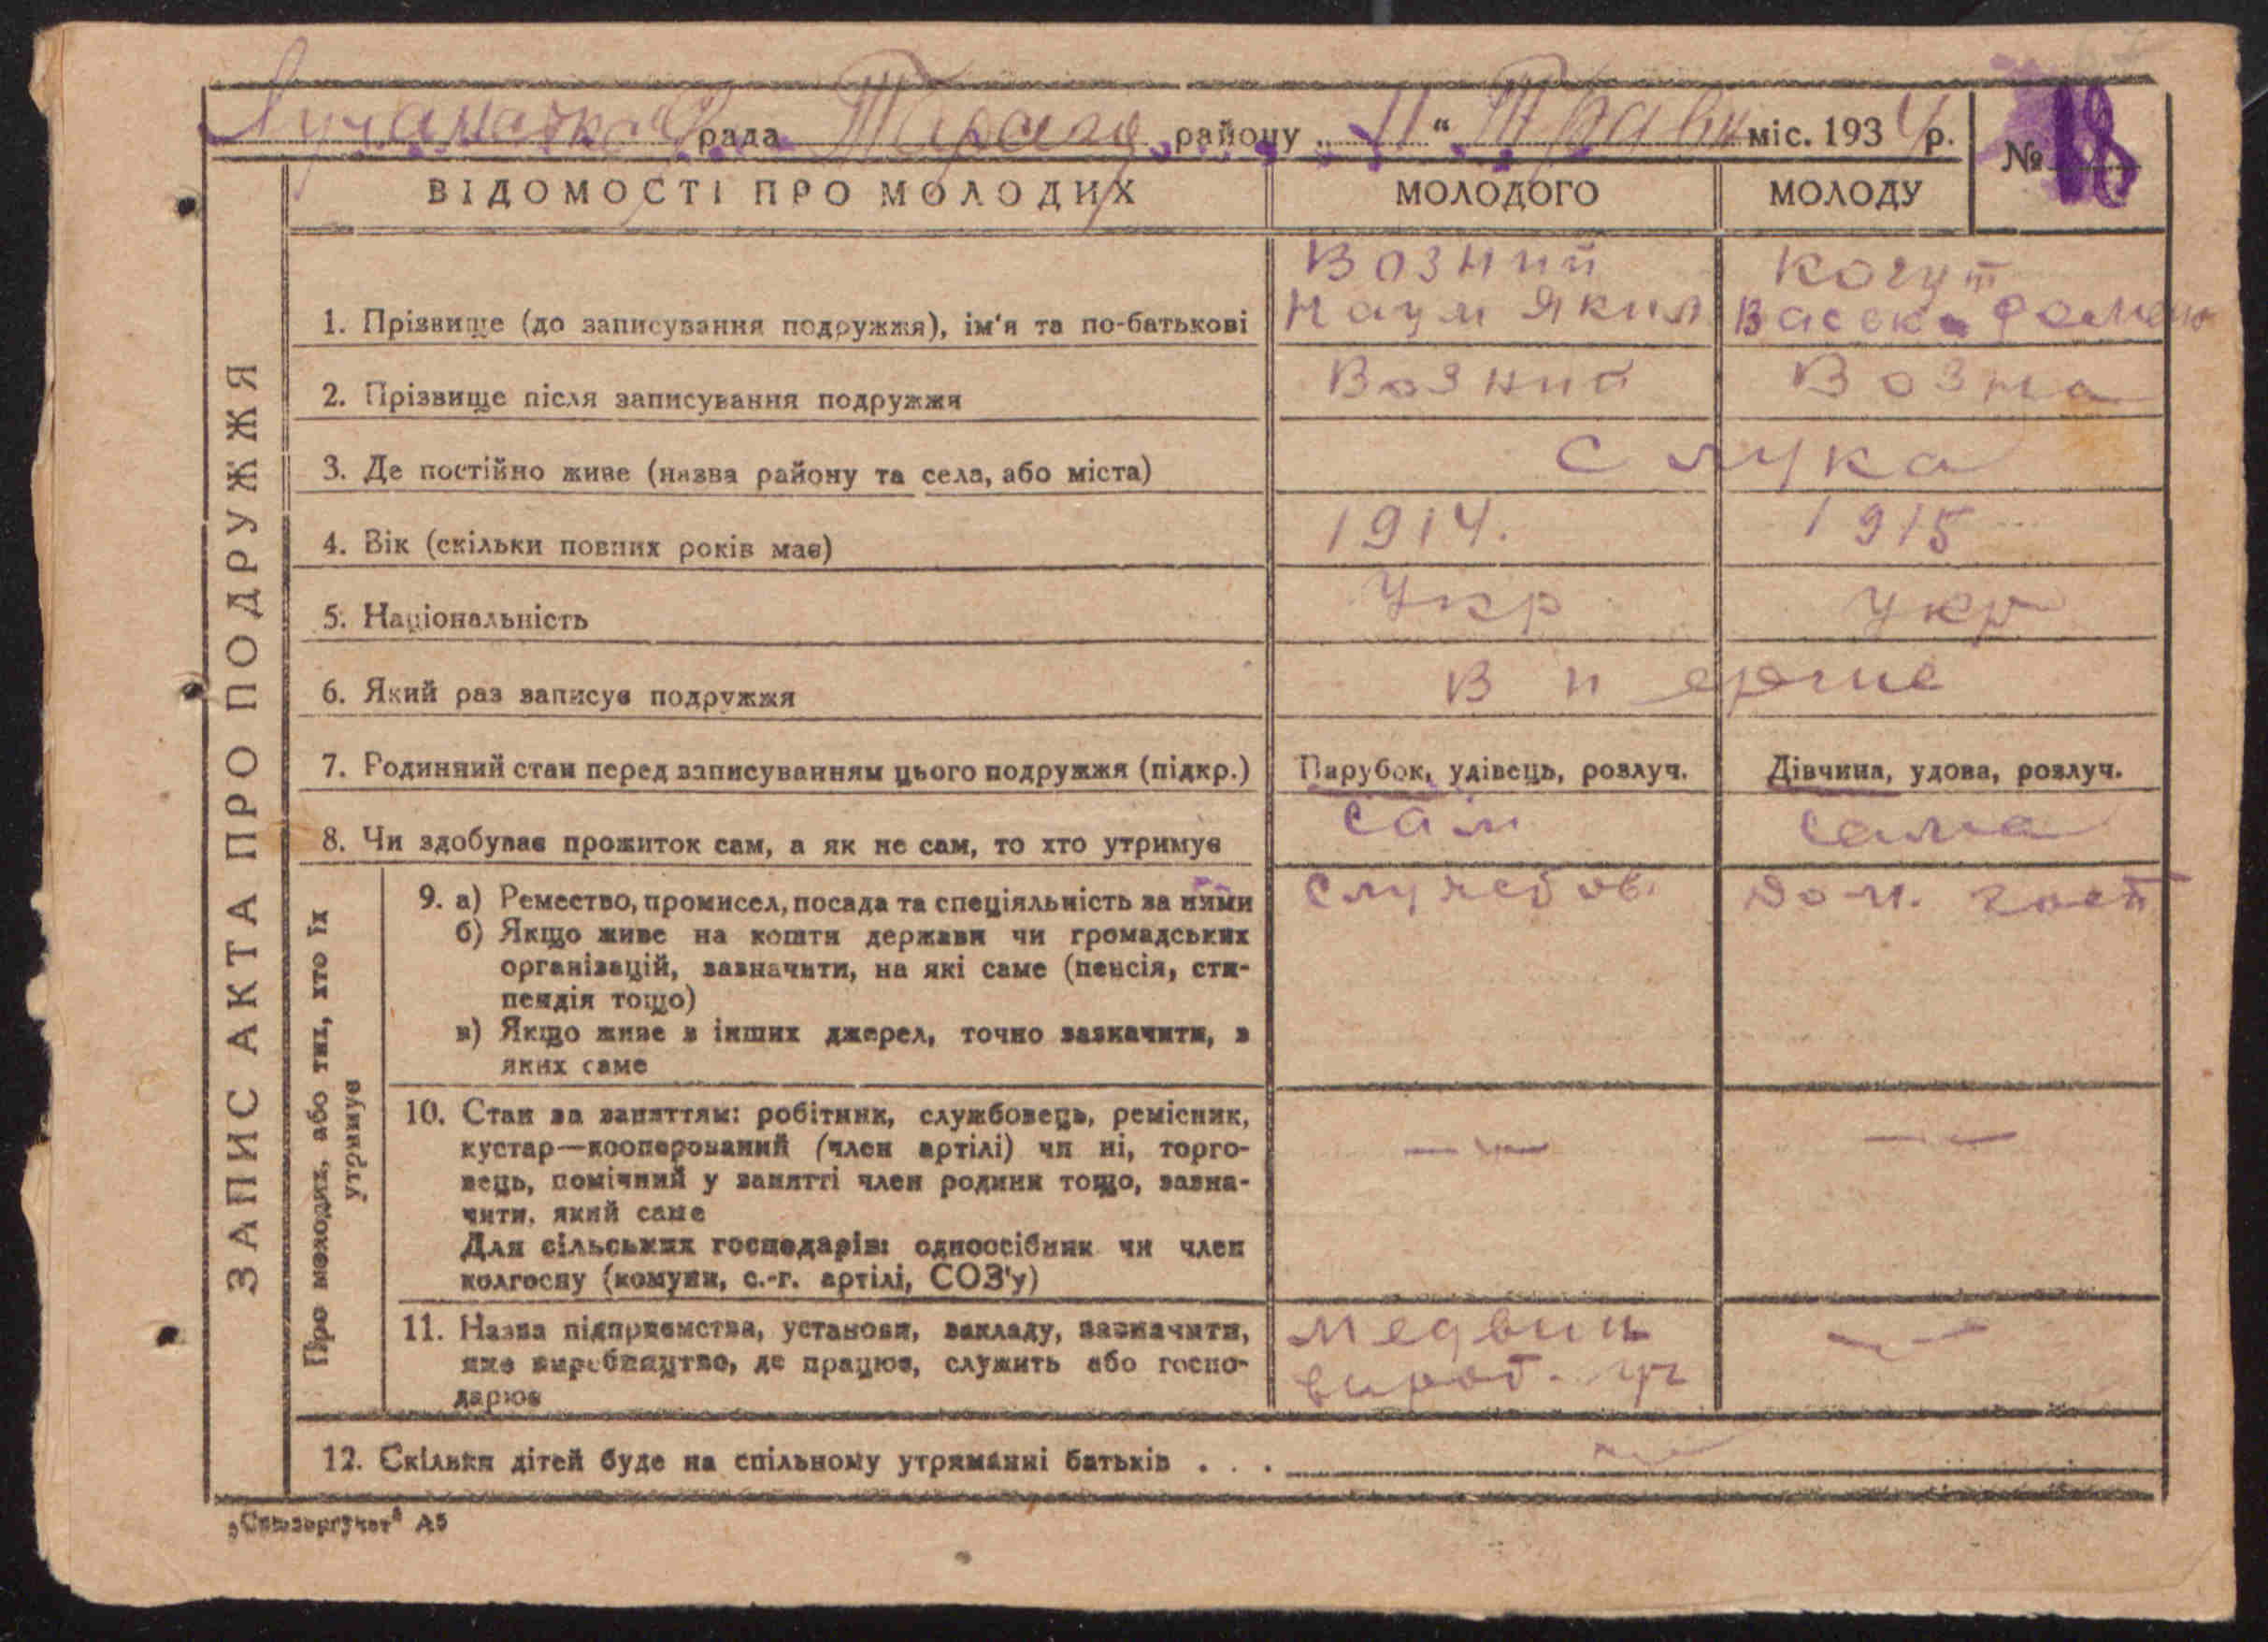 рада района „11“ Трав міс. 1934 р.
№ 18
ВІДОМОСТІ ПРО МОЛОДИХ МОЛОДОГО МОЛОДУ
ЗАПИС АКТА ПРО ПОДРУЖЖЯ
Возний Когут
1. Прізвище (до записування подружжя), ім'я та по-батькові Наум Яким
2. Прізвище після записування подружжя Возний Возна
3. Де постійно живе (назва району та села, або міста) с Лука
4. Вік (скільки повних років має) 1914. 1915
5. Національність Укр Укр
6. Який раз записує подружжя Вперше
7. Родинний стан перед записуванням цього подружжя (підкр.) Парубок, удівець, розлуч. Дівчина, удова, розлуч.
8. Чи здобуває прожиток сам, а як не сам, то хто утримує сам сама
Про молодих, або тих, хто їх
утримує
9. а) Ремество, промисел, посада та спеціяльність за ними Дом. госп
б) Якщо живе на кошти держави чи громадських
організацій, зазначити, на які саме (пенсія, сти-
пендія тощо)
в) Якщо живе з інших джерел, точно зазначити, з
яких саме
10. Стан за заняттям: робітник, службовець, ремісник,
кустар—кооперований (член артілі) чи ні, торго-
вець, помічний у занятті член родини тощо, зазна-
чити, який саме
Для сільських господарів: одноосібник чи член
колгоспу (комуни, с.-г. артілі, СОЗ'у)
11. Назва підприємства, установи, закладу, зазначити,
яке виробництво, де працює, служить або госпо-
дарює
12. Скільки дітей буде на спільному утриманні батьків . . .
А5